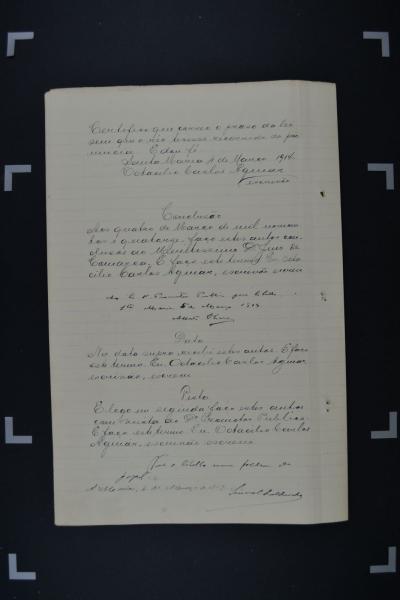 Certifico que correu o prazo da lei
sem que o réo tivesse recorrido da pro
nuncia. E dou fé
Santa Maria 4 de Março 1914.
Octacilio Carlos Aguiar
escrivão
Conclusão
Aos quatro de Março de mil novecen
tos e quatorze, faço estes autos con
clusos ao Meretissimo Dr. Juiz da
Comarca. E faço este termo Eu Octa
cilio Carlos Aguiar, escrivão escrevi
Ao Promotor Publico
Sta Maria 5 de Março
Data
Na data supra recebi estes autos. E faço
este termo. Eu, Octacilio Carlos Aguiar
escrivão, escrevi
Vista
E logo em seguida faço estes autos
com vista ao Dr. Promotor Publico.
E faço este termo. Eu Octacilio Carlos
Aguiar, escrivão escrevi.
Vae o libello em
papel